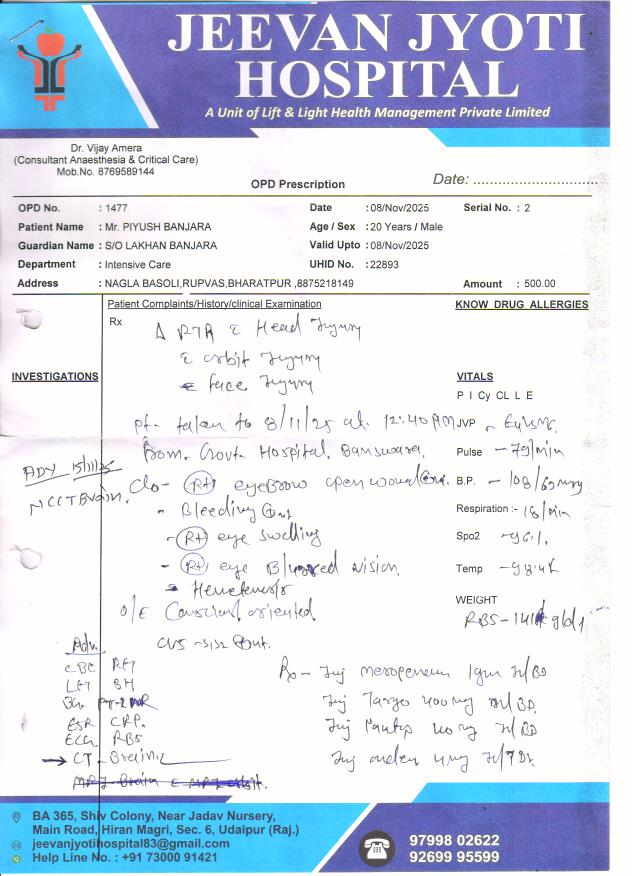 JEEVAN JYOTI
HOSPITAL
A Unit of Lift & Light Health Management Private Limited
Dr. Vijay Amera
(Consultant Anaesthesia & Critical Care)
Mob.No. 8769589144
OPD Prescription
Date: ..............................
OPD No. : 1477 Date : 08/Nov/2025 Serial No. : 2
Patient Name : Mr. PIYUSH BANJARA Age / Sex : 20 Years / Male
Guardian Name : S/O LAKHAN BANJARA Valid Upto : 08/Nov/2025
Department : Intensive Care UHID No. : 22893
Address : NAGLA BASOLI,RUPVAS,BHARATPUR ,8875218149 Amount : 500.00
Patient Complaints/History/clinical Examination KNOW DRUG ALLERGIES
Rx
Δ RTA c Head Injury
c orbit Injury
c face Injury
INVESTIGATIONS
VITALS
P I Cy CL L E
pt. taken to 8/11/25 at 12:40 AM JVP
from Govt. Hospital, Banswara. Pulse - 79/min
ADV 15/11/25
NCCT Brain.
c/o - Rt eyeBrow open wound B.P. - 108/
- Bleeding Respiration:- 18/min
- Rt eye swelling Spo2 -96%
- Rt eye Blurred vision. Temp -98.4
O/E Conscious oriented
WEIGHT
RBS-
CVS -S1S2
Adv.
CBC RFT
LFT
ESR CRP.
ECG RBS
→ CT - Brain
MRI Brain c MRI orbit.
Rx - Inj meropenem 1gm
Inj Targo 400mg
Inj Pantop 40mg
Inj 4mg
BA 365, Shiv Colony, Near Jadav Nursery,
Main Road, Hiran Magri, Sec. 6, Udaipur (Raj.)
jeevanjyotihospital83@gmail.com
Help Line No. : +91 73000 91421
97998 02622
92699 95599